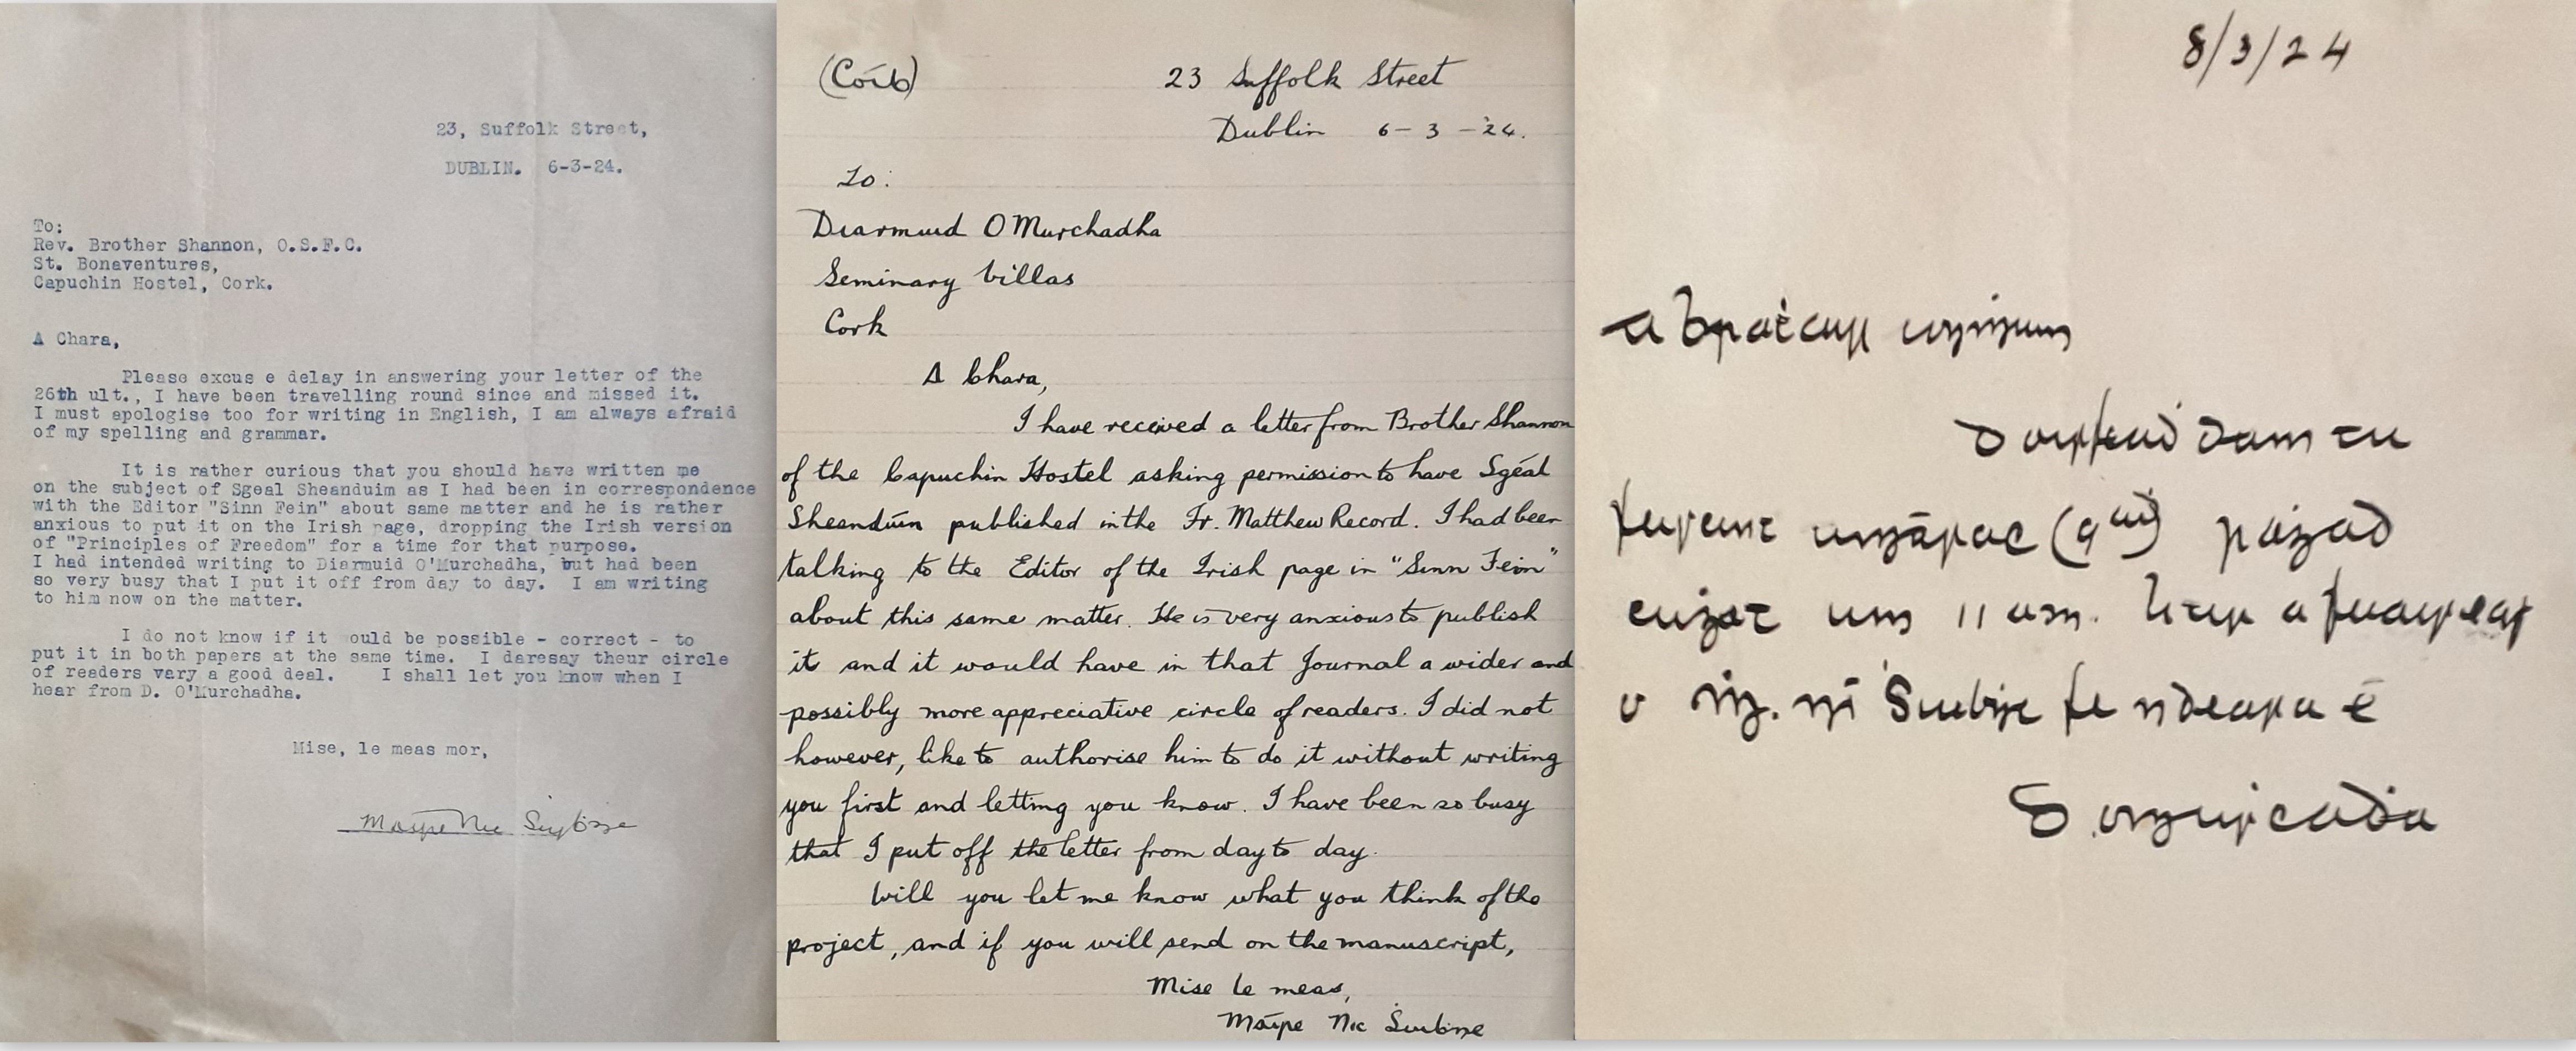 23, Suffolk Street,
DUBLIN. 6-3-24.
To:
Rev. Brother Shannon, O.S.F.C.
St. Bonaventures,
Capuchin Hostel, Cork.
A Chara,
Please excus e delay in answering your letter of the
26th ult., I have been travelling round since and missed it.
I must apologise too for writing in English, I am always afraid
of my spelling and grammar.
It is rather curious that you should have written me
on the subject of Sgeal Sheanduim as I had been in correspondence
with the Editor "Sinn Fein" about same matter and he is rather
anxious to put it on the Irish page, dropping the Irish version
of "Principles of Freedom" for a time for that purpose.
I had intended writing to Diarmuid O'Murchadha, but had been
so very busy that I put it off from day to day. I am writing
to him now on the matter.
I do not know if it ould be possible - correct - to
put it in both papers at the same time. I daresay theur circle
of readers vary a good deal. I shall let you know when I
hear from D. O'Murchadha.
Mise, le meas mor,
Máire Nic Suibne
(Cóib)
23 Suffolk Street
Dublin 6-3-24.
To:
Diarmuid O Murchadha
Seminary Villas
Cork
A Chara,
I have received a letter from Brother Shannon
of the Capuchin Hostel asking permission to have Sgéal
Sheandúin published in the Fr. Matthew Record. I had been
talking to the Editor of the Irish page in "Sinn Fein"
about this same matter. He is very anxious to publish
it and it would have in that Journal a wider and
possibly more appreciative circle of readers. I did not
however, like to authorise him to do it without writing
you first and letting you know. I have been so busy
that I put off the letter from day to day.
Will you let me know what you think of the
project, and if you will send on the manuscript,
Mise le meas,
Máire Nic Suibne
8/3/24
a bráṫair
dam tu
(9ad)
11 a.m. litir a fuaireas
ó Ní Ṡuibne fé ndeara é